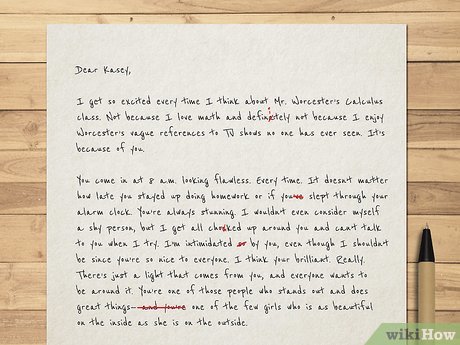 Dear Kasey,
I get so excited every time I think about Mr. Worcester's Calculus
class. Not because I love math and definitely not because I enjoy
Worcester's vague references to TV shows no one has ever seen. It's
because of you.
You come in at 8 a.m. looking flawless. Every time. It doesn't matter
how late you stayed up doing homework or if you're slept through your
alarm clock. You're always stunning. I wouldnt even consider myself
a shy person, but I get all choked up around you and cant talk
to you when I try. I'm intimidated or by you, even though I shouldnt
be since you're so nice to everyone. I think your brilliant. Really.
There's just a light that comes from you, and everyone wants to
be around it. You're one of those people who stands out and does
great things—and you're one of the few girls who is as beautiful
on the inside as she is on the outside.
wikiHow